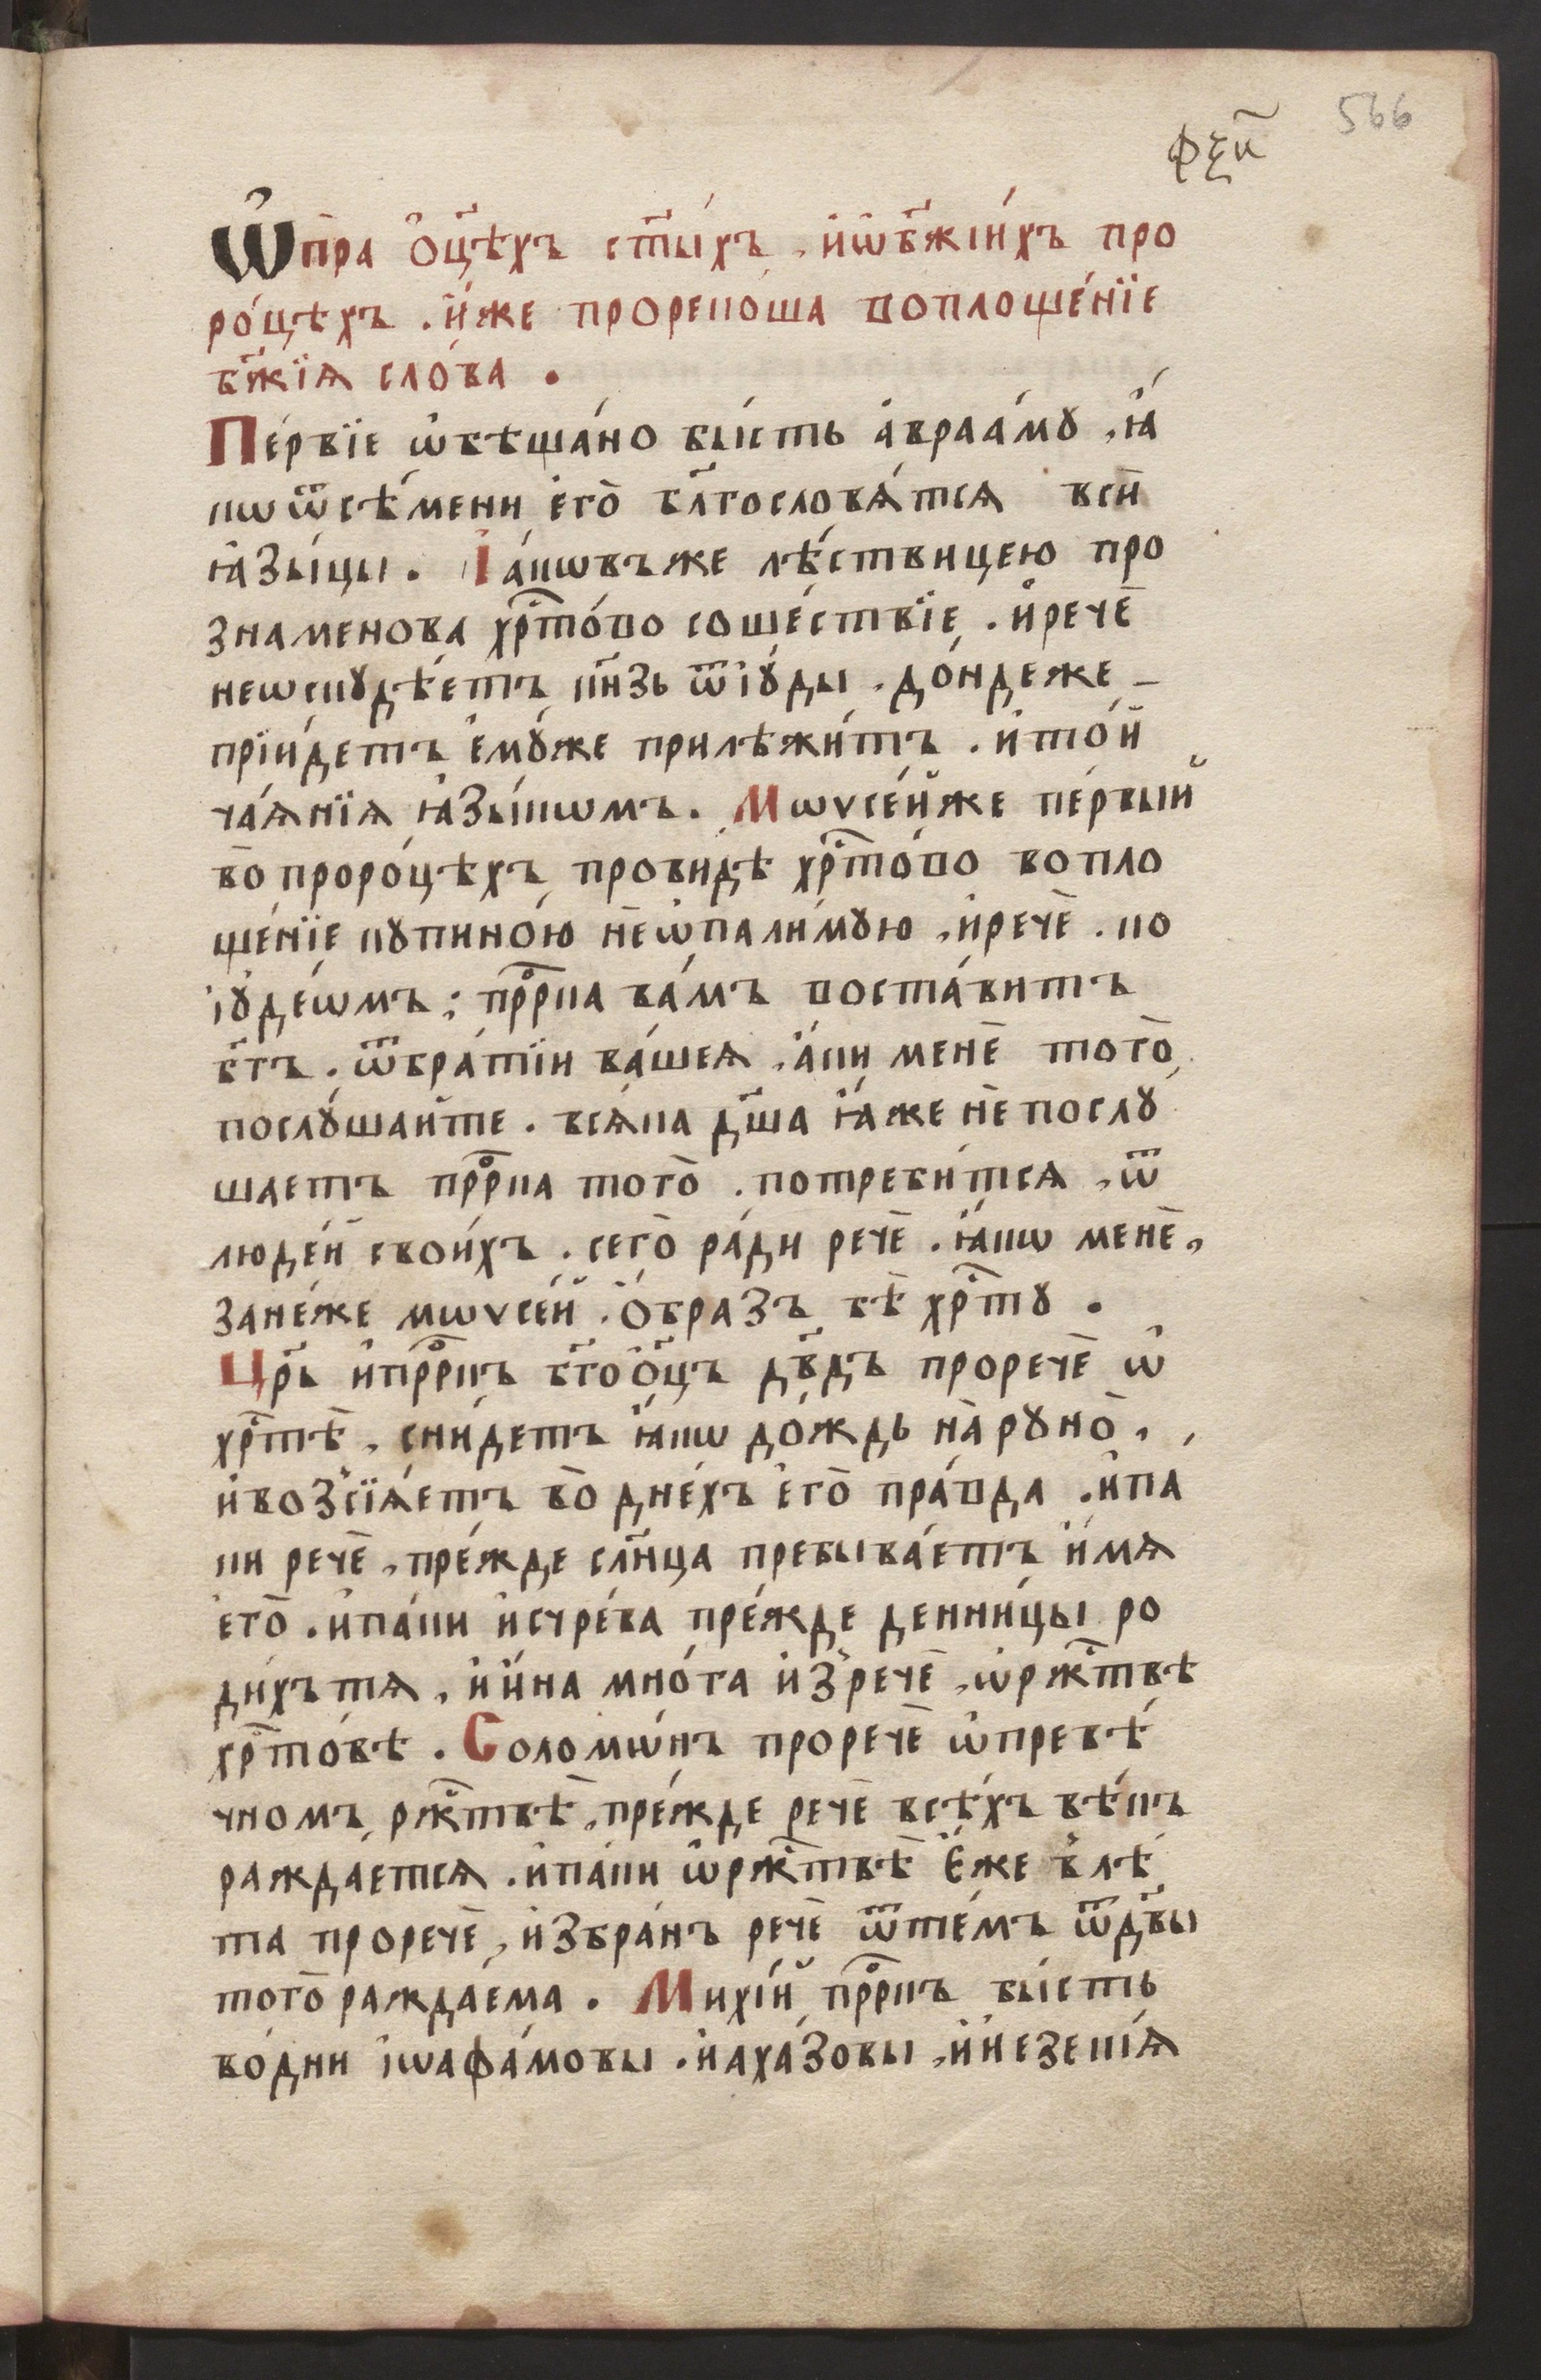 566
фѯи҃
Ѡ҆ пра ѻ҆ц҃ѣхъ ст҃ы́хъ, и҆ ѡ҆ бж҃їи́хъ про
ро́цѣхъ. и҆́же прореко́ша воплоще́нїе
бж҃їѧ сло́ва.
Пе́рвїе ѡ҆бѣща́но бы́сть а҆враа́мꙋ, ꙗ҆́
кѡ ѿ сѣ́мени є҆го̀ бл҃гословѧ́тсѧ всѝ
ꙗ҆зы́цы. І҆а́кѡвъ же лѣ́ствицею про
знаменова хрⷭ҇то́во соше́ствїе. и҆ речѐ
не ѡ҆скꙋдѣ́етъ кн҃зь ѿ і҆ꙋ́ды. до́ндеже
прїи́детъ є҆мꙋ́же прилѣжи́тъ. и҆ то́й
ча́ѧнїѧ ꙗ҆зы́кѡмъ. Мѡѵсе́й же пе́рвый
во̀ проро́цѣхъ прови́дѣ хрⷭ҇то́во вопло
ще́нїе кꙋпино́ю нѐѡ҆пали́мꙋю, и҆ речѐ. ко
і҆ꙋде́ѡмъ: прⷪ҇рка ва́мъ воста́витъ
бг҃ъ. ѿ бра́тїи ва́шеѧ, а҆́ки менѐ тогѡ̀
послꙋ́шайте. всѧ́ка дш҃а ꙗ҆́же нѐ послꙋ
шаетъ прⷪ҇рка того̀. потреби́тсѧ, ѿ
люде́й свои́хъ. сего̀ ра́ди речѐ. ꙗ҆́кѡ менѐ,
зане́же мѡѵсе́й. ѻ҆́бразъ бѣ̀ хрⷭ҇тꙋ.
Цр҃ь и҆ прⷪ҇ркъ бг҃оѻ҆ц҃ъ дв҃дъ проречѐ ѡ҆
хрⷭ҇тѣ̀, сни́детъ ꙗ҆́кѡ до́ждь на̀ рꙋно̀,,
и҆ возсїѧ́етъ во̀ дне́хъ є҆го̀ пра́вда. и҆ па
ки речѐ, пре́жде сл҃нца пребыва́етъ и҆́мѧ
є҆го̀. и҆ па́ки и҆счре́ва пре́жде денни́цы ро
ди́хъ тѧ, и҆ и҆́на мно́га и҆зречѐ, ѡ҆ржⷭ҇твѣ
хрⷭ҇то́вѣ. Соломѡ́нъ проречѐ ѡ҆ превѣ́
чномъ ржⷭ҇твѣ̀, пре́жде речѐ всѣ́хъ вѣ́къ
раждаетсѧ. и҆ па́ки ѡ҆ ржⷭ҇твѣ̀ є҆́же в̾ лѣ́
та проречѐ, и҆збра́нъ речѐ ѿ те́мъ ѿ дв҃ы
того̀ ражда́ема. Михі́й прⷪ҇ркъ бы́сть
во́ дни і҆ѡаѳа́мовы. и҆ аха́зовы, и҆ и҆езекі́ѧ